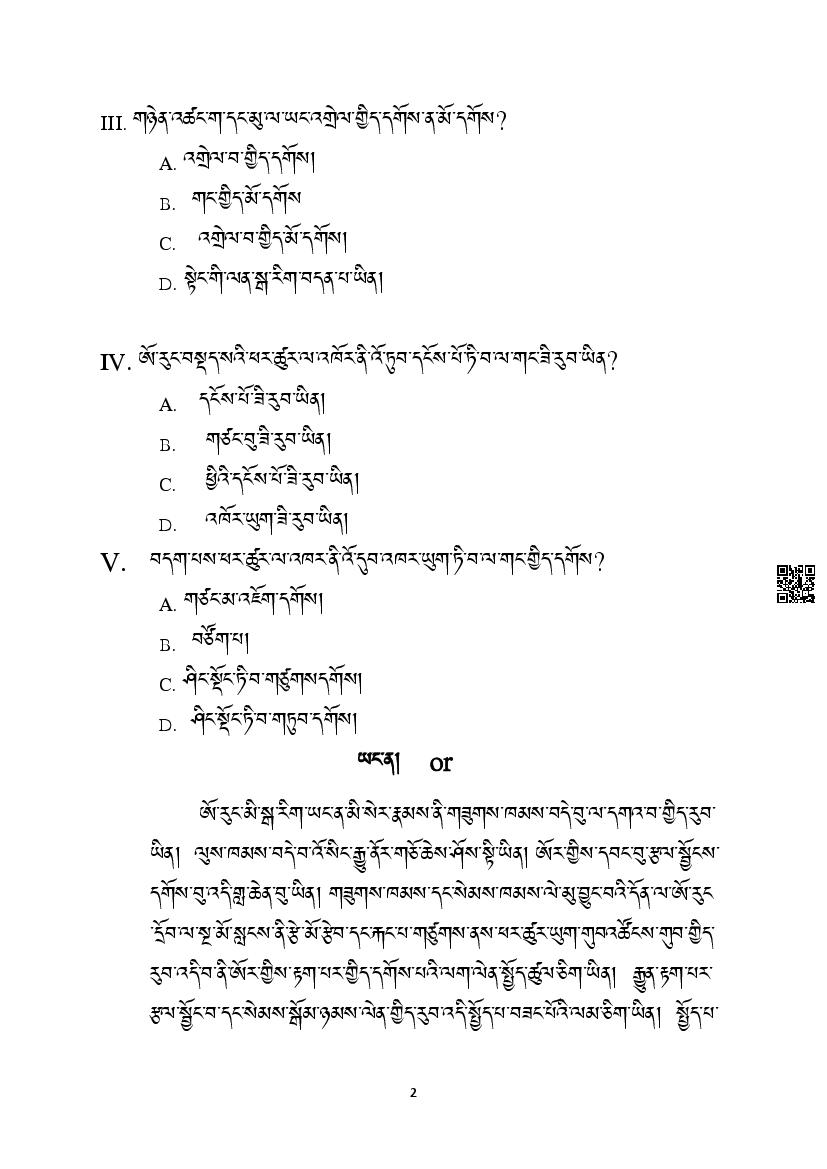 III. གཉེན་འཚང་ག་དང་མུ་ལ་ཡང་འགྲེལ་གྱིད་དགོས་ན་མོ་དགོས?
A. འགྲེལ་བ་གྱིད་དགོས།
B. གང་གྱིད་མོ་དགོས
C. འགྲེལ་བ་གྱིད་མོ་དགོས།
D. སྟེང་གི་ལན་སྒྲ་རིག་བདན་པ་ཡིན།
IV. ཨོ་རུང་བསྡད་སའི་ཕར་ཚུར་ལ་འཁོར་ནི་འོ་ཏུབ་དངོས་པོ་ཏི་བ་ལ་གང་ཟི་རུབ་ཡིན?
A. དངོས་པོ་ཟི་རུབ་ཡིན།
B. གཙང་བུ་ཟི་རུབ་ཡིན།
C. ཕྱིའི་དངོས་པོ་ཟི་རུབ་ཡིན།
D. འཁོར་ཡུག་ཟི་རུབ་ཡིན།
V. བདག་པས་ཕར་ཚུར་ལ་འཁར་ནི་འོ་དུབ་འཁར་ཡུག་ཏི་བ་ལ་གང་གྱིད་དགོས?
A. གཙང་མ་འཇོག་དགོས།
B. བཙོག་པ།
C. ཤིང་སྡོང་ཏི་བ་གཙུགས་དགོས།
D. ཤིང་སྡོང་ཏི་བ་གཏུབ་དགོས།
ཡང་ན། or
ཨོ་རུང་མི་སྒྲ་རིག་ཡང་ན་མི་སེར་རྣམས་ནི་གཟུགས་ཁམས་བདེ་བུ་ལ་དགའ་བ་གྱིད་རུབ་
ཡིན། ལུས་ཁམས་བདེ་བ་འོ་སིང་རྒྱུ་ནོར་གཙོ་ཆེས་ཤོས་སྟི་ཡིན། ཨོར་གྱིས་དབང་བུ་རྩལ་སྦྱོངས་
དགོས་བུ་འདི་གླ་ཆེན་བུ་ཡིན། གཟུགས་ཁམས་དང་སེམས་ཁམས་ལེ་མུ་བྱུང་བའི་དོན་ལ་ཨོ་རུང
་དྲོབ་ལ་སྔ་མོ་སླངས་ནི་རྩེ་མོ་རྩེབ་དང་རྐང་པ་གཙུགས་ནས་ཕར་ཚུར་ཡུག་གུབའཚོངས་གུབ་གྱིད་
རུབ་འདི་བ་ནི་ཨོར་གྱིས་རྟག་པར་གྱིད་དགོས་པའི་ལག་ལེན་སྤྱོད་ཚུལ་ཅིག་ཡིན། རྒྱུན་རྟག་པར་
རྩལ་སྦྱོང་བ་དང་སེམས་སྒོམ་ཉམས་ལེན་གྱིད་རུབ་འདི་སྤྱོད་པ་བཟང་པོའི་ལམ་ཅིག་ཡིན། སྤྱོད་པ་
2